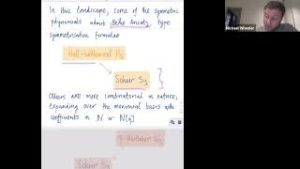 In this landscape, some of the symmetric
polynomials admit
type
symmetrisation formulas
Hall-Littlewood
Schur Sλ
Others are more combinatorial in nature,
expanding over the monomial basis with
coefficients in N or N[q]
q-Whittaker
Schur Sλ
Michael Wheeler